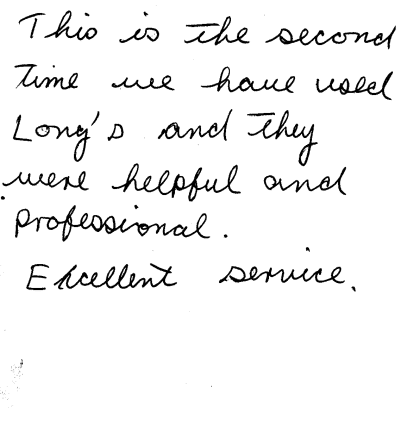 This is the second
time we have used
Long's and they
were helpful and
professional.
Excellent service.